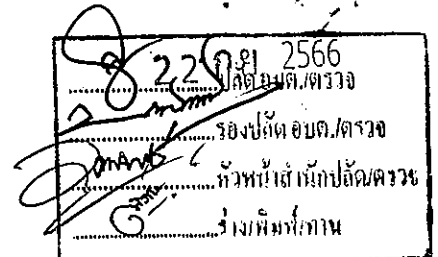 22 ก.ย 2566
ปลัด อบต./ตรวจ
รองปลัด อบต./ตรวจ
หัวหน้าสำนักปลัด/ตรวจ
ร่าง/พิมพ์/ทาน